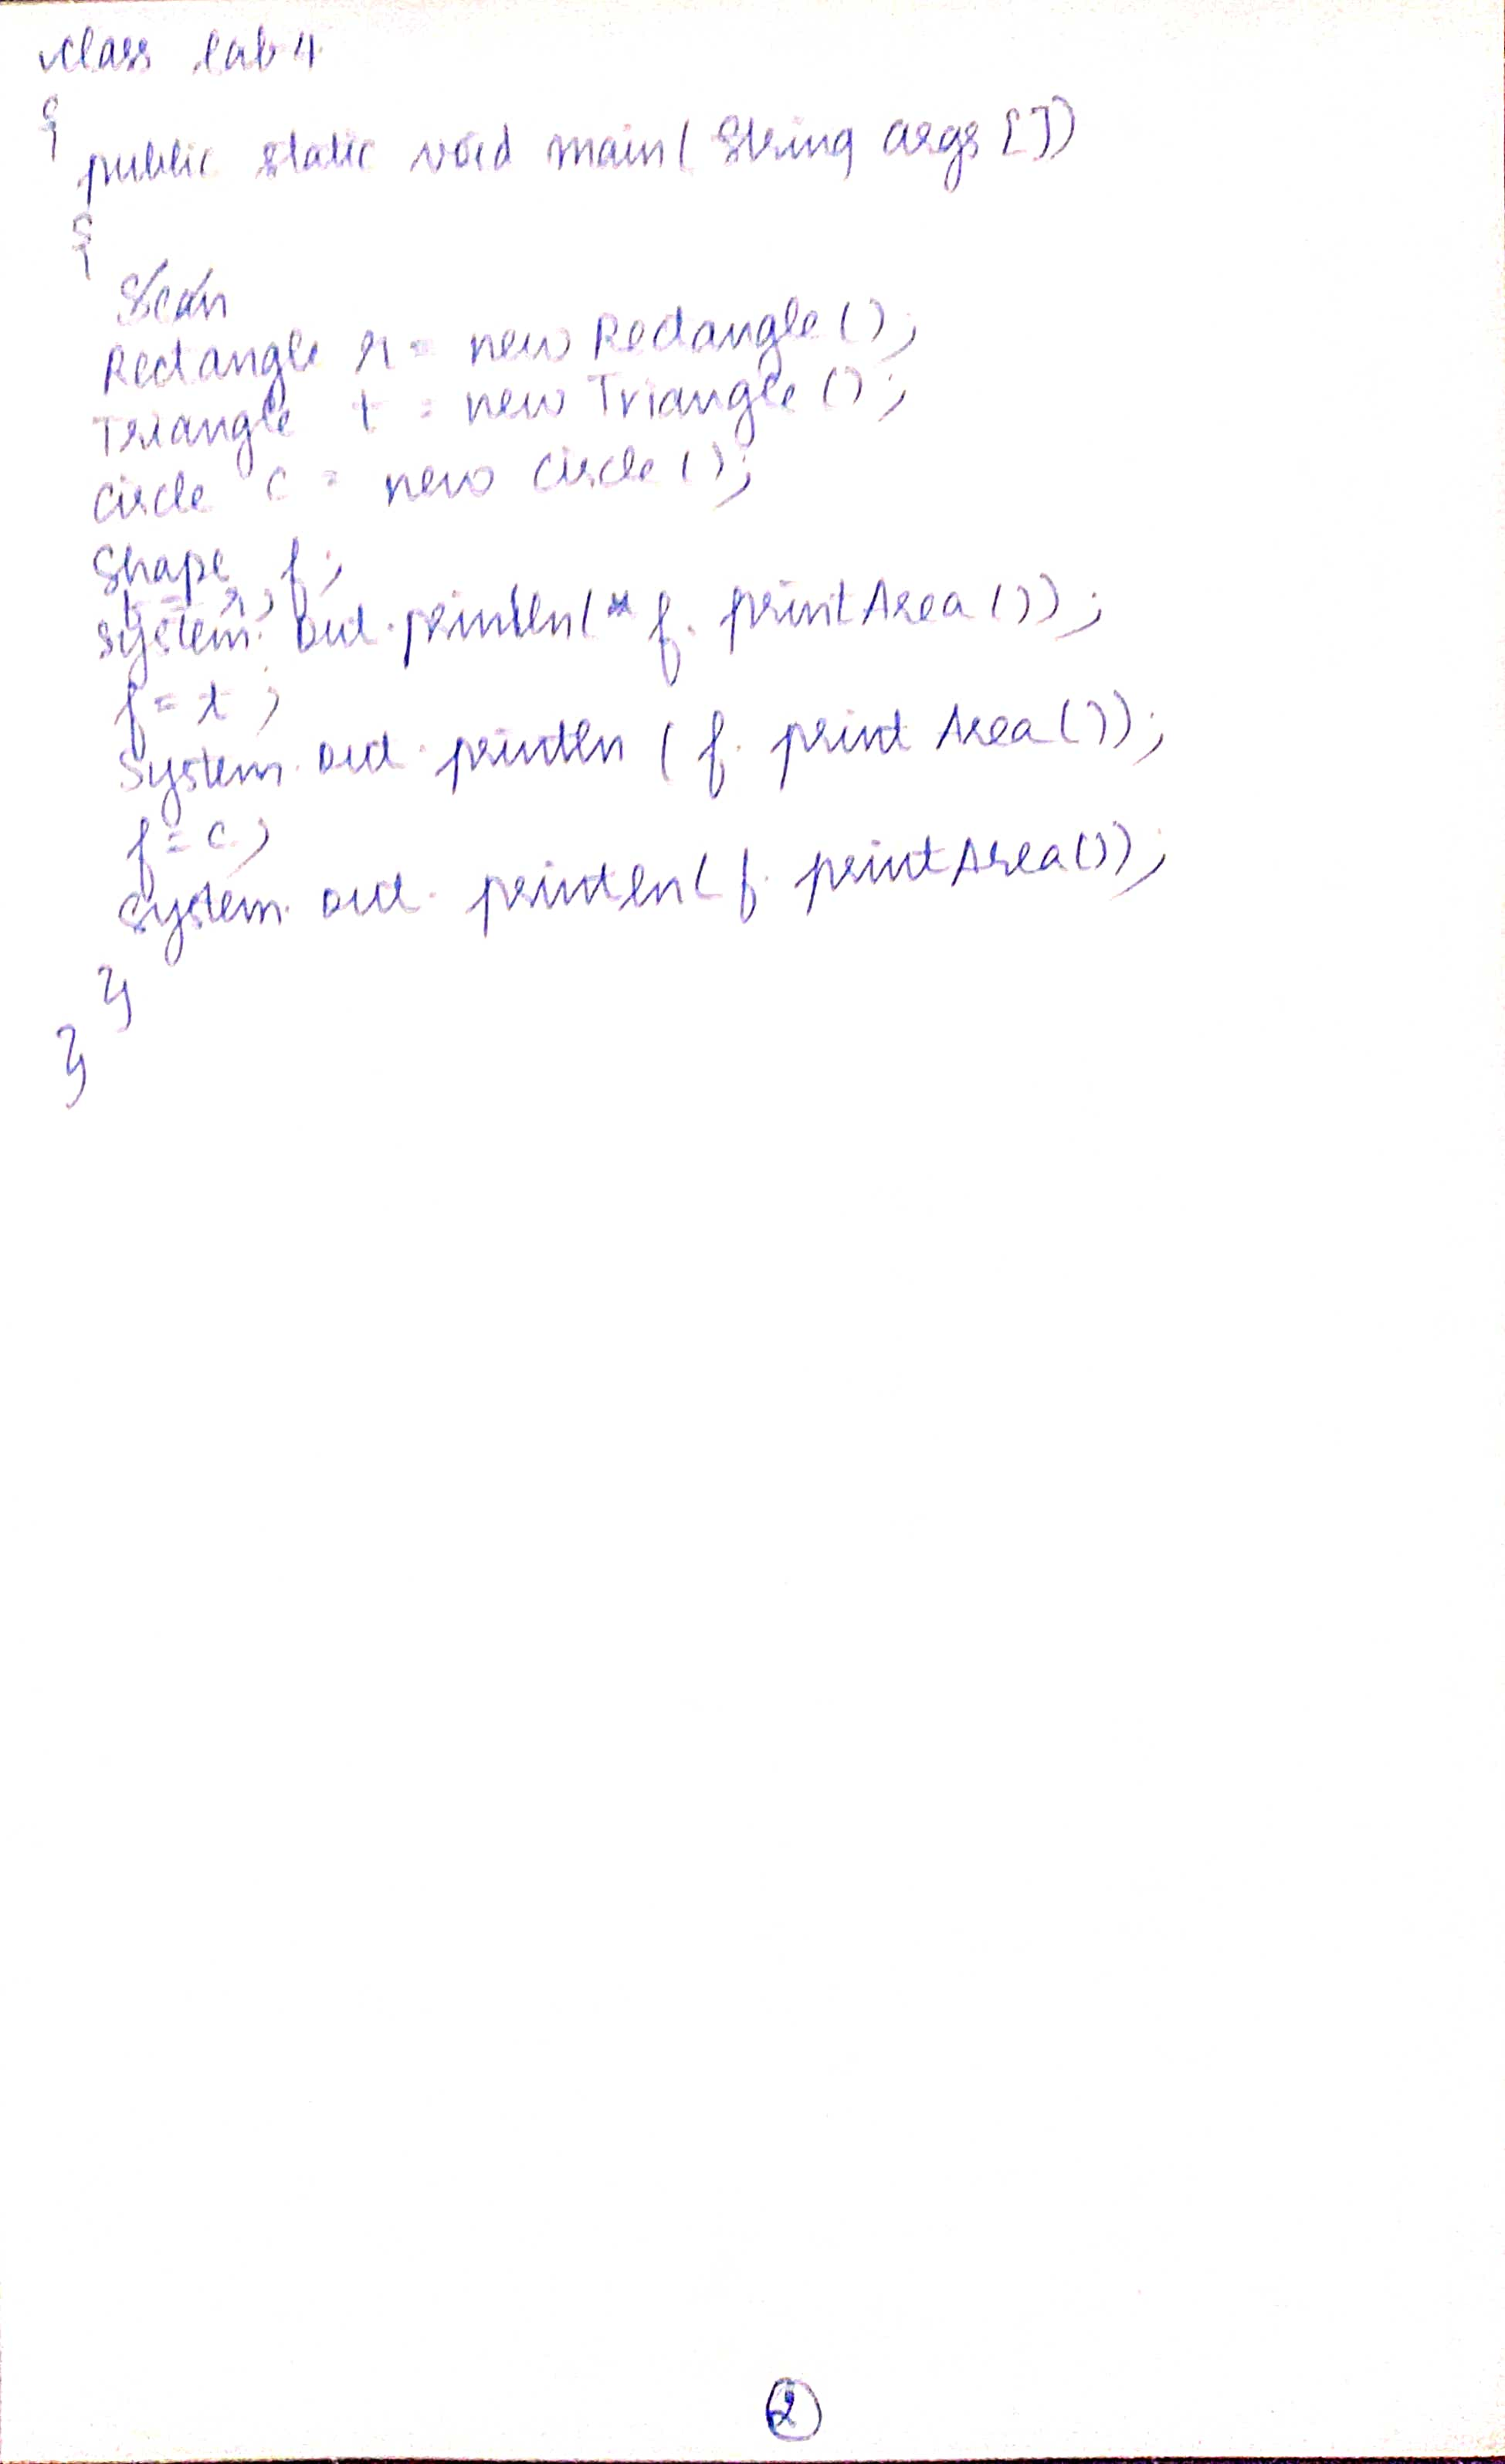 class lab 4
{
public static void main( String args [])
{
Scan
Rectangle r = new Rectangle ();
Triangle t = new Triangle ();
Circle c = new Circle ();
Shape f;
f = r;
System. out. println( f. printArea ());
f = t ;
System. out. println ( f. print Area ());
f = c;
System. out. println( f. printArea());
}
}
2